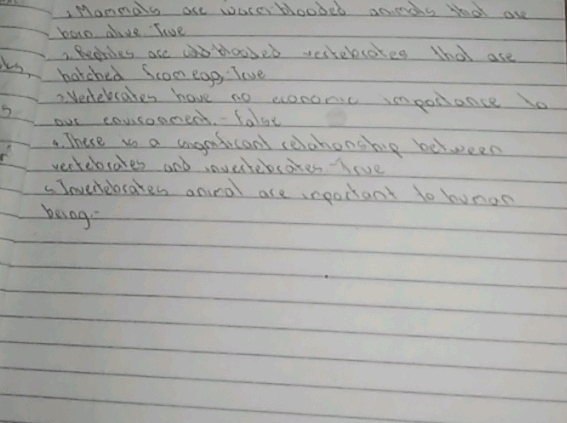 1. Mammals are warm blooded animals that are
born alive True
2. Reptiles are blooded vertebrates that are
hatched from egg. True
3. Vertebrates have no economic importance to
our environment. - false
4. There is a significant relationship between
vertebrates and invertebrates - True
5 Invertebrates animal are important to human
being -